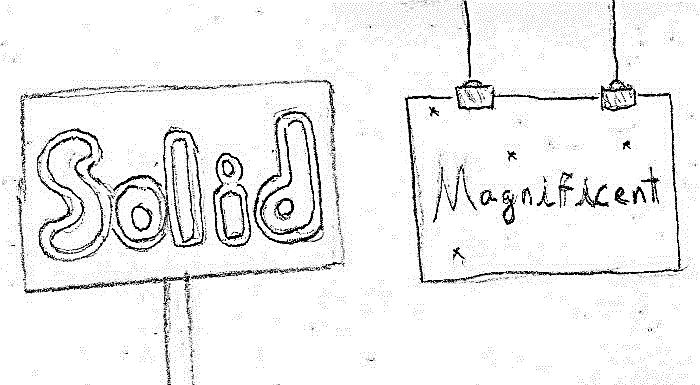 Solid
Magnificent